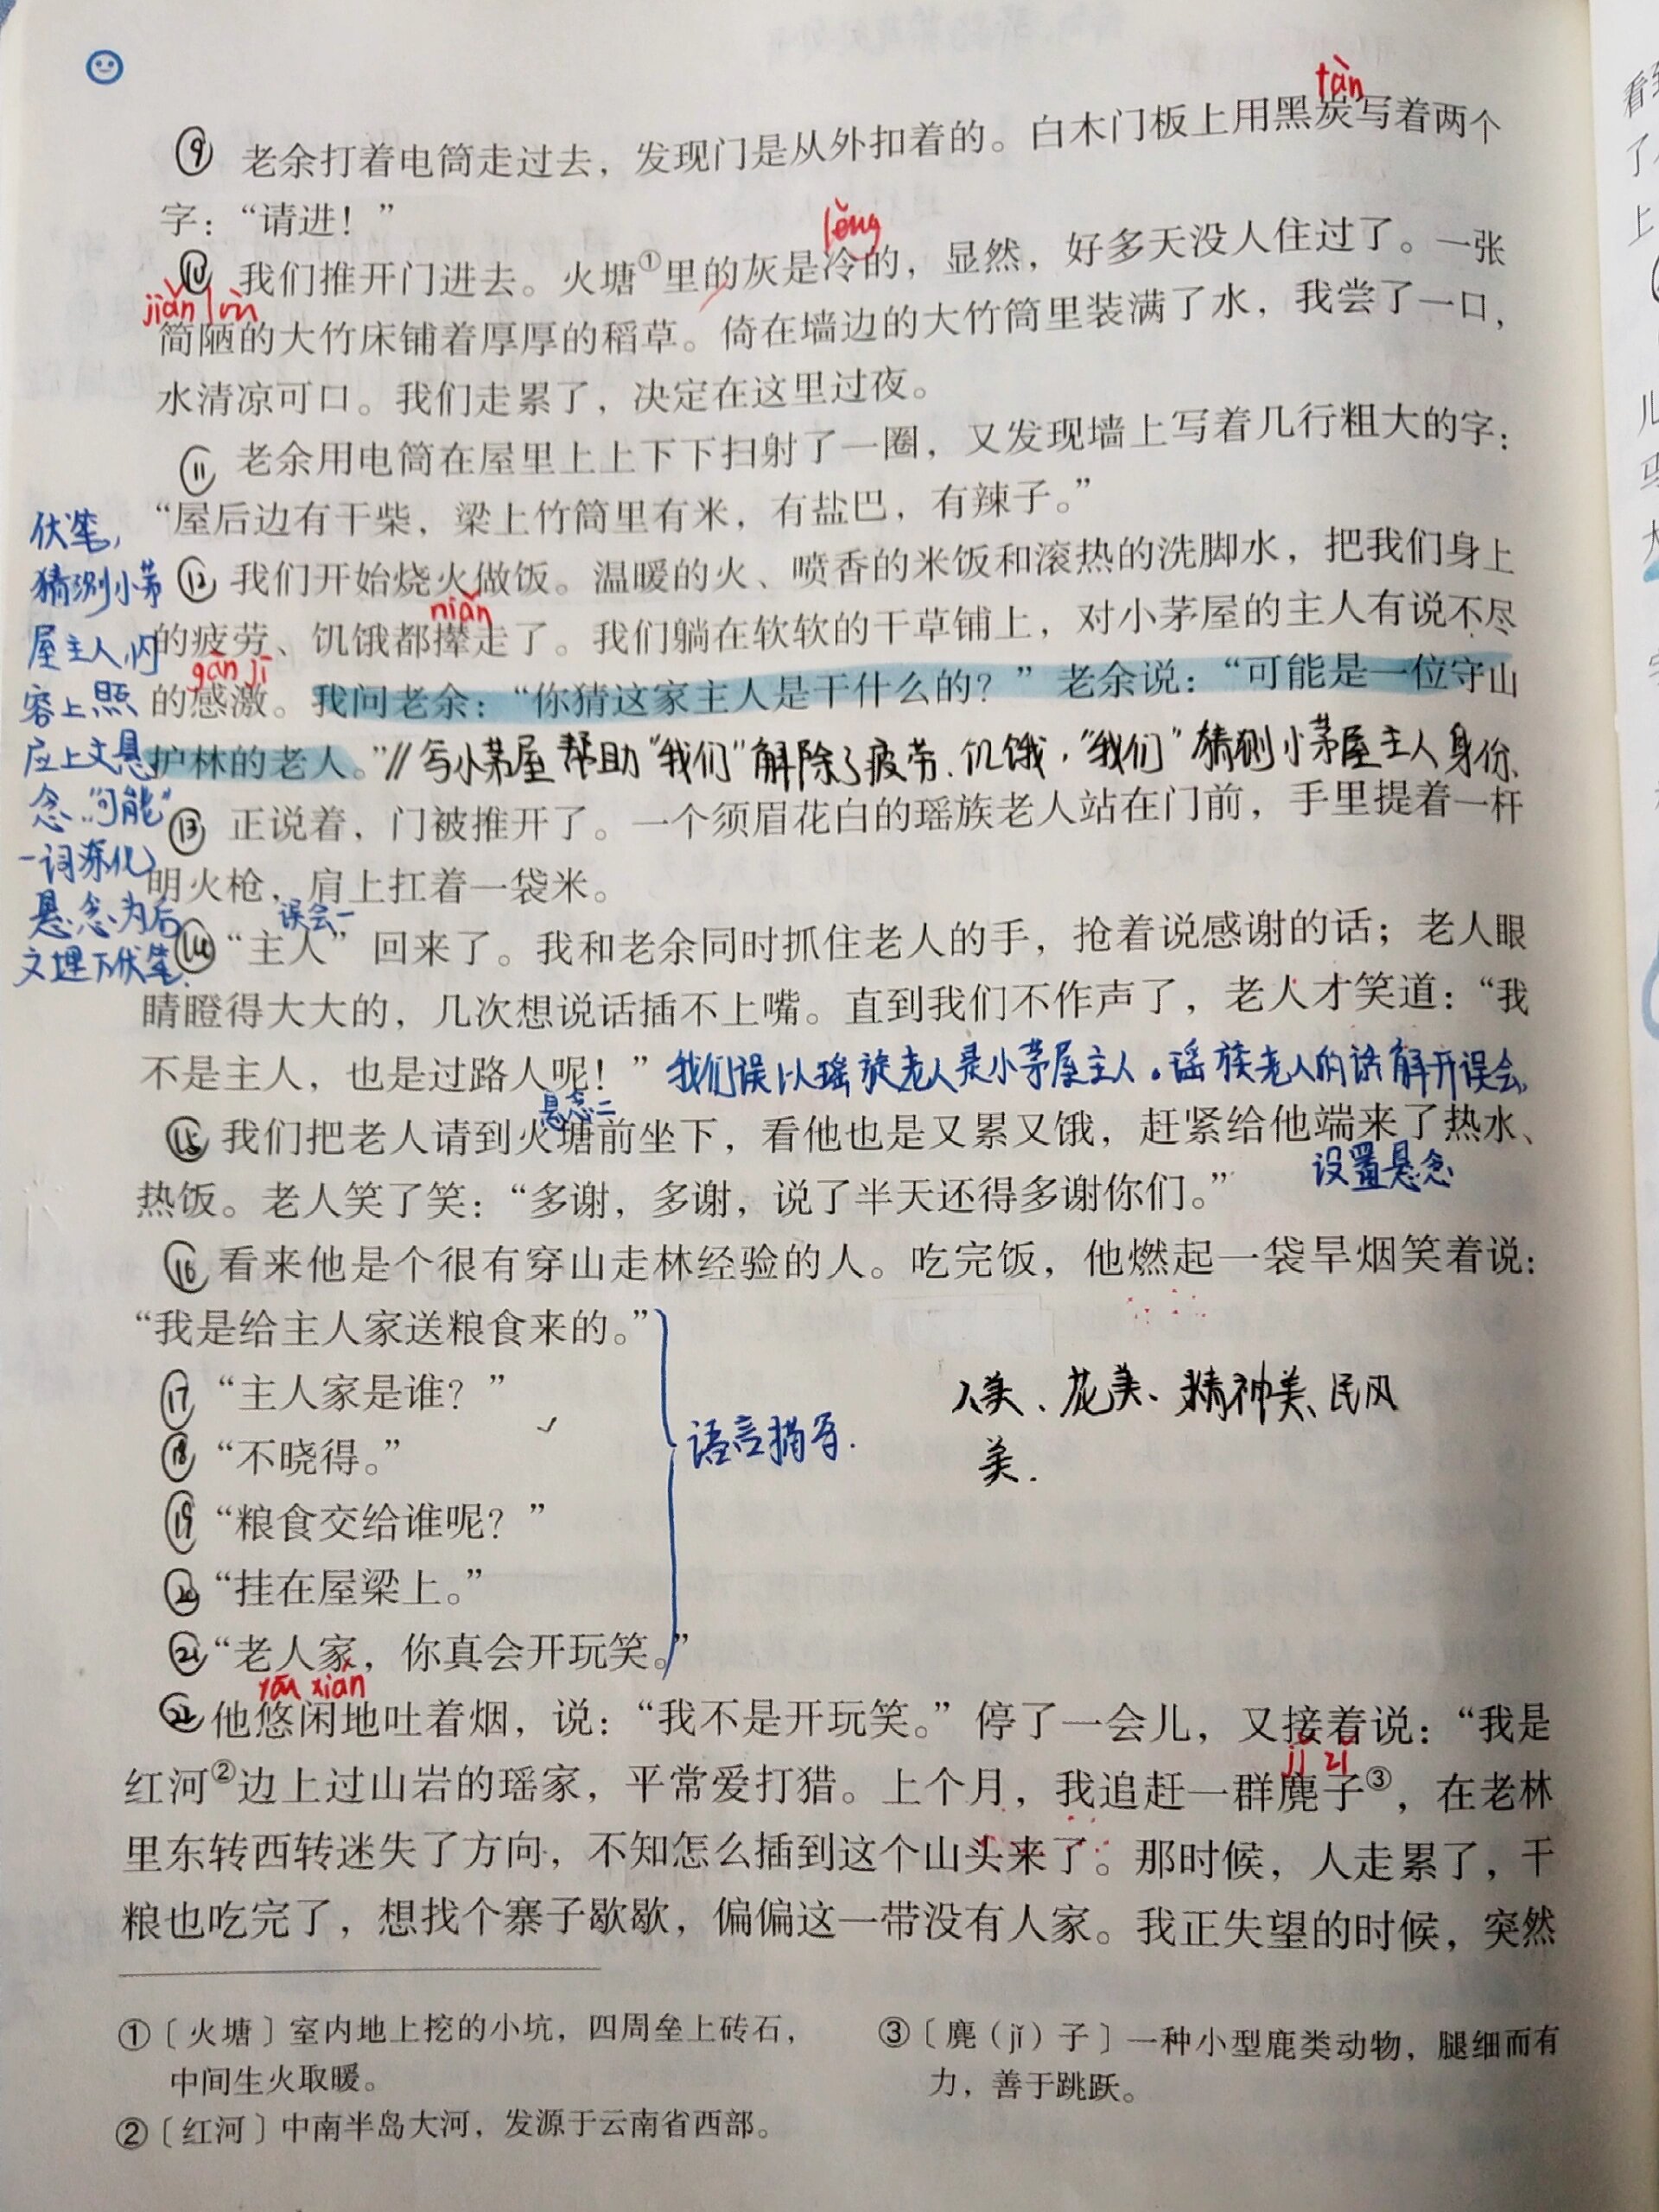 tàn
⑨ 老余打着电筒走过去，发现门是从外扣着的。白木门板上用黑炭写着两个
字：“请进！”
lěng
⑩ 我们推开门进去。火塘①里的灰是冷的，显然，好多天没人住过了。一张
jiǎn lòu
简陋的大竹床铺着厚厚的稻草。倚在墙边的大竹筒里装满了水，我尝了一口，
水清凉可口。我们走累了，决定在这里过夜。
⑪ 老余用电筒在屋里上上下下扫射了一圈，又发现墙上写着几行粗大的字：
“屋后边有干柴，梁上竹筒里有米，有盐巴，有辣子。”
⑫ 我们开始烧火做饭。温暖的火、喷香的米饭和滚热的洗脚水，把我们身上
niǎn
的疲劳、饥饿都撵走了。我们躺在软软的干草铺上，对小茅屋的主人有说不尽
gǎn jī
的感激。我问老余：“你猜这家主人是干什么的？”老余说：“可能是一位守山
护林的老人。”//写小茅屋帮助“我们”解除了疲劳、饥饿，“我们”猜测小茅屋主人身份、
伏笔，
猜测小茅
屋主人，内
容上照
应上文悬
念，“可能”
一词深化
悬念为后
文埋下伏笔。
⑬ 正说着，门被推开了。一个须眉花白的瑶族老人站在门前，手里提着一杆
明火枪，肩上扛着一袋米。
误会一
⑭ “主人”回来了。我和老余同时抓住老人的手，抢着说感谢的话；老人眼
睛瞪得大大的，几次想说话插不上嘴。直到我们不作声了，老人才笑道：“我
不是主人，也是过路人呢！”我们误以瑶族老人是小茅屋主人。瑶族老人的话解开误会，
悬念二
⑮ 我们把老人请到火塘前坐下，看他也是又累又饿，赶紧给他端来了热水、
设置悬念
热饭。老人笑了笑：“多谢，多谢，说了半天还得多谢你们。”
⑯ 看来他是个很有穿山走林经验的人。吃完饭，他燃起一袋旱烟笑着说：
“我是给主人家送粮食来的。”
⑰ “主人家是谁？”
⑱ “不晓得。”
⑲ “粮食交给谁呢？”
⑳ “挂在屋梁上。”
㉑ “老人家，你真会开玩笑。”
语言描写.
人美、花美、精神美、民风
美.
yōu xián
㉒ 他悠闲地吐着烟，说：“我不是开玩笑。”停了一会儿，又接着说：“我是
jǐ zǐ
红河②边上过山岩的瑶家，平常爱打猎。上个月，我追赶一群麂子③，在老林
里东转西转迷失了方向，不知怎么插到这个山头来了。那时候，人走累了，干
粮也吃完了，想找个寨子歇歇，偏偏这一带没有人家。我正失望的时候，突然
①〔火塘〕室内地上挖的小坑，四周垒上砖石，
中间生火取暖。
②〔红河〕中南半岛大河，发源于云南省西部。
③〔麂（jǐ）子〕一种小型鹿类动物，腿细而有
力，善于跳跃。
看到
上